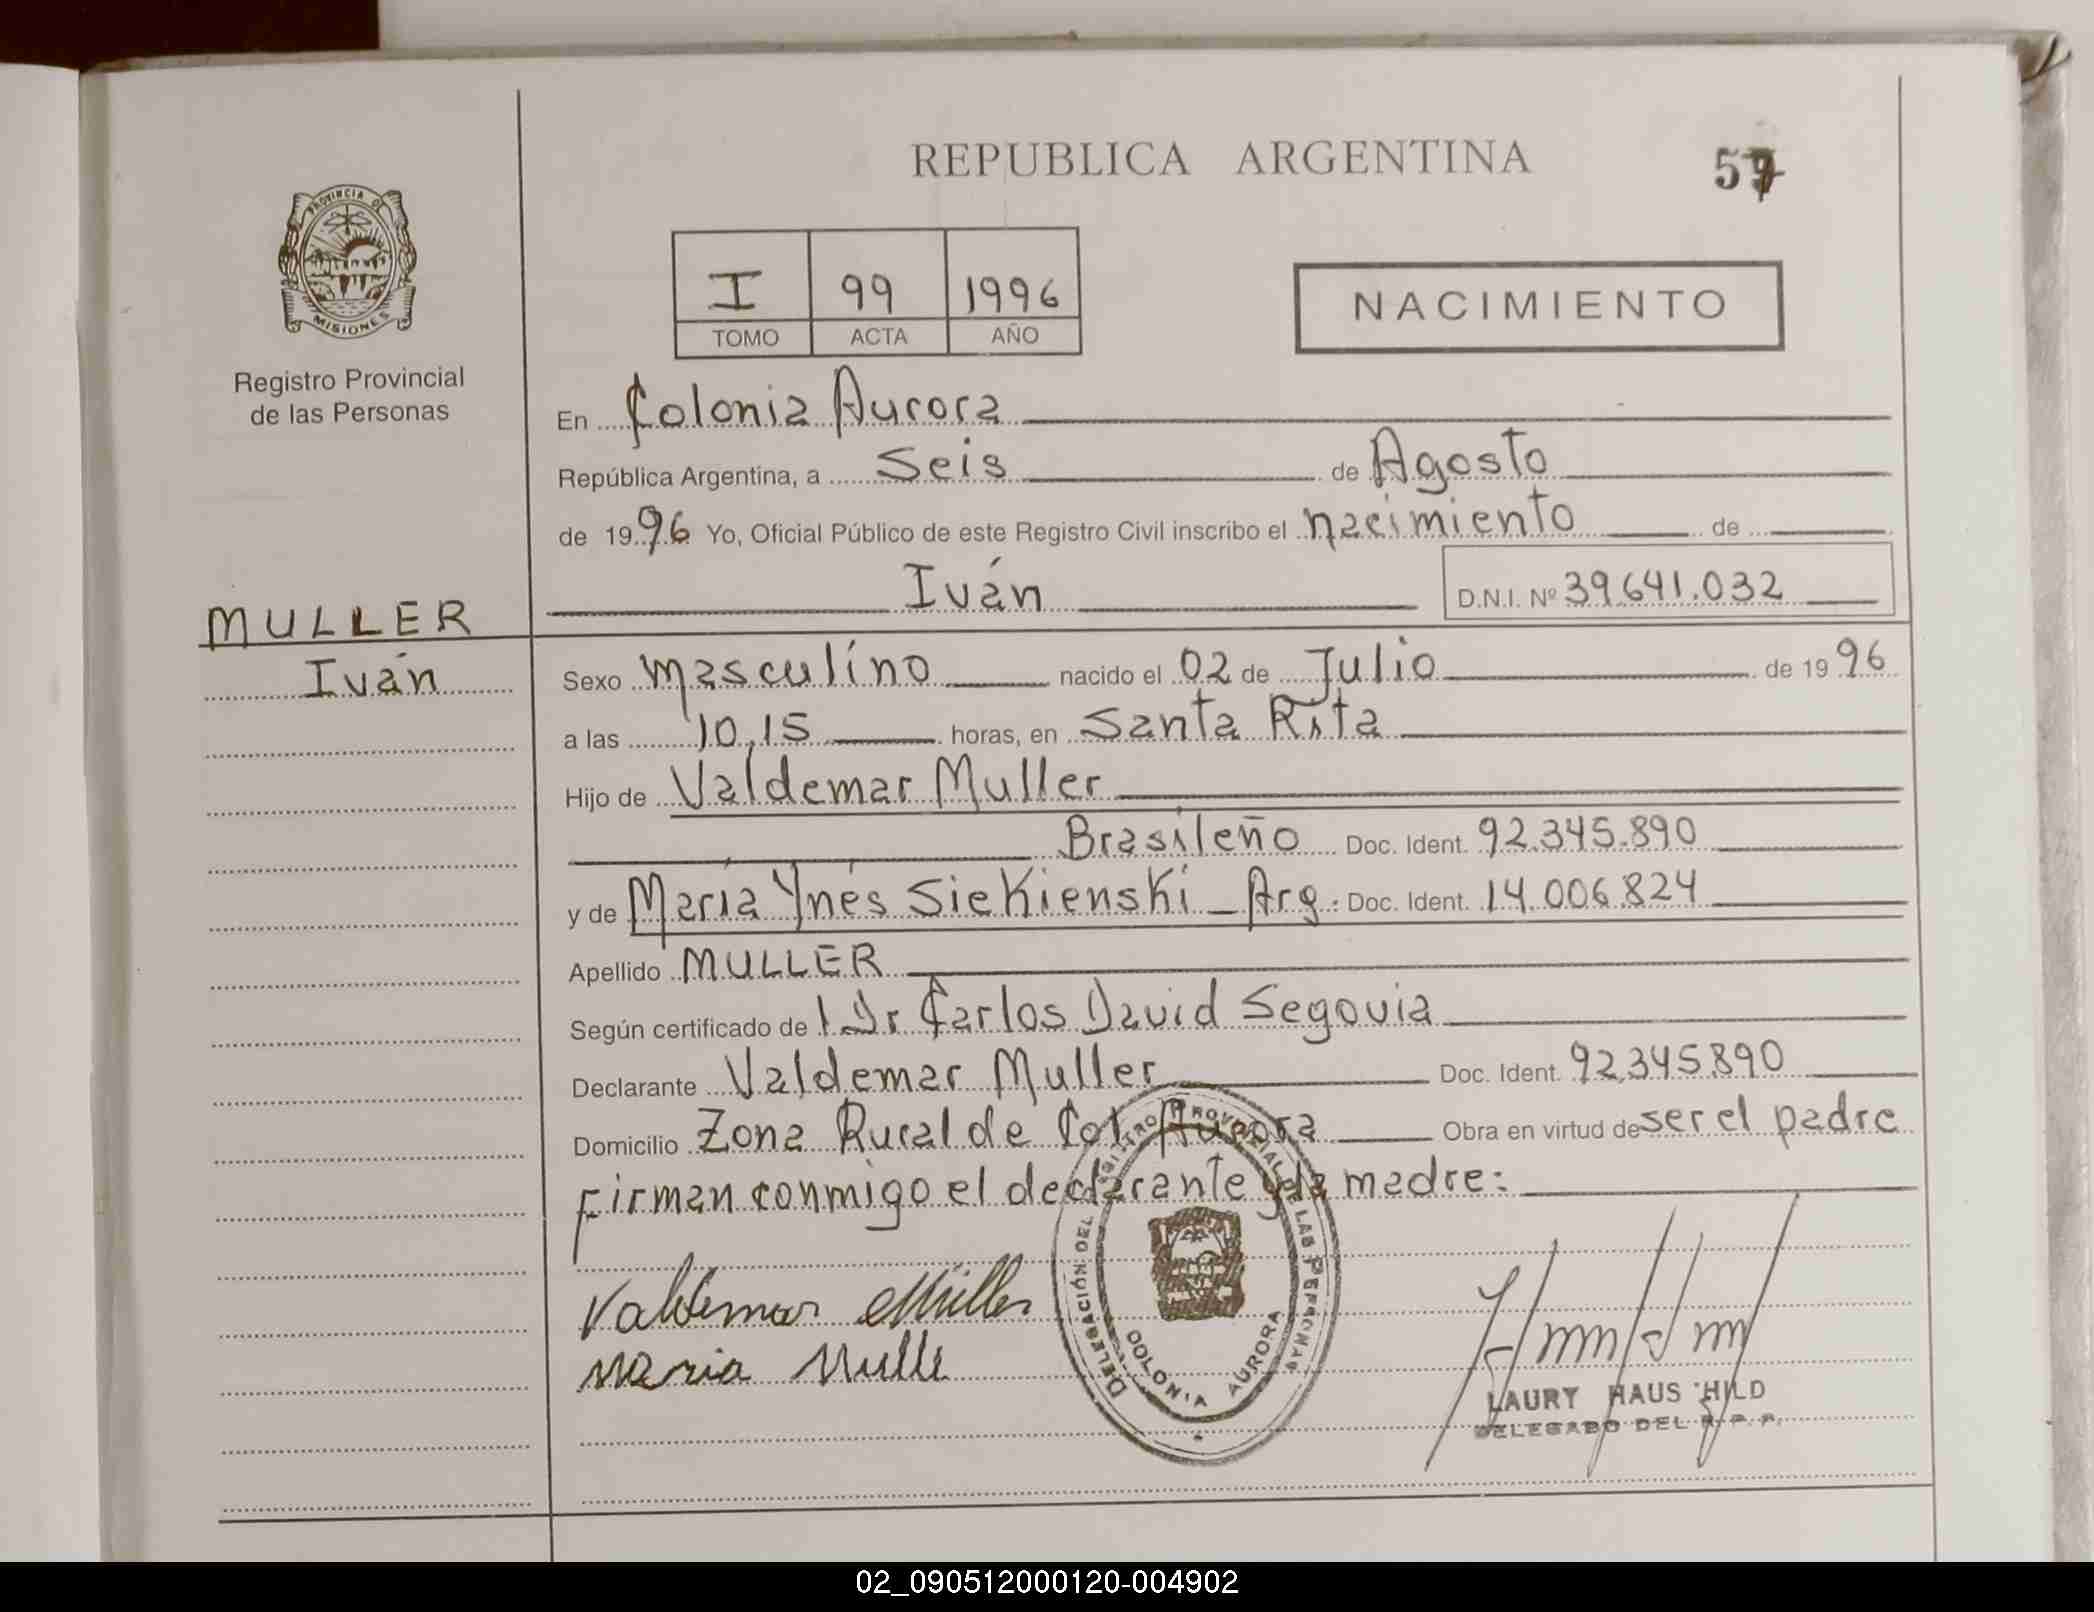 REPUBLICA ARGENTINA
57
PROVINCIA DE
MISIONES
Registro Provincial
de las Personas
I 99 1996
TOMO ACTA AÑO
NACIMIENTO
En Colonia Aurora
República Argentina, a Seis de Agosto
de 1996 Yo, Oficial Público de este Registro Civil inscribo el nacimiento de
Iván
D.N.I. Nº 39.641.032
MULLER
Iván
Sexo masculino nacido el 02 de Julio de 1996
a las 10,15 horas, en Santa Rita
Hijo de Valdemar Muller
Brasileño Doc. Ident. 92.345.890
y de María Ynés Siekienski _ Arg. Doc. Ident. 14.006.824
Apellido MULLER
Según certificado de l Dr Carlos David Segovia
Declarante Valdemar Muller Doc. Ident. 92.345.890
Domicilio Zona Rural de Col. Aurora Obra en virtud de ser el padre
Firman conmigo el declarante y la madre:
Valdemar Müller
Maria Mulle
DELEGACIÓN DEL REGISTRO PROVINCIAL DE LAS PERSONAS
COLONIA AURORA
LAURY HAUS HILD
DELEGADO DEL R. P. P.
02_090512000120-004902